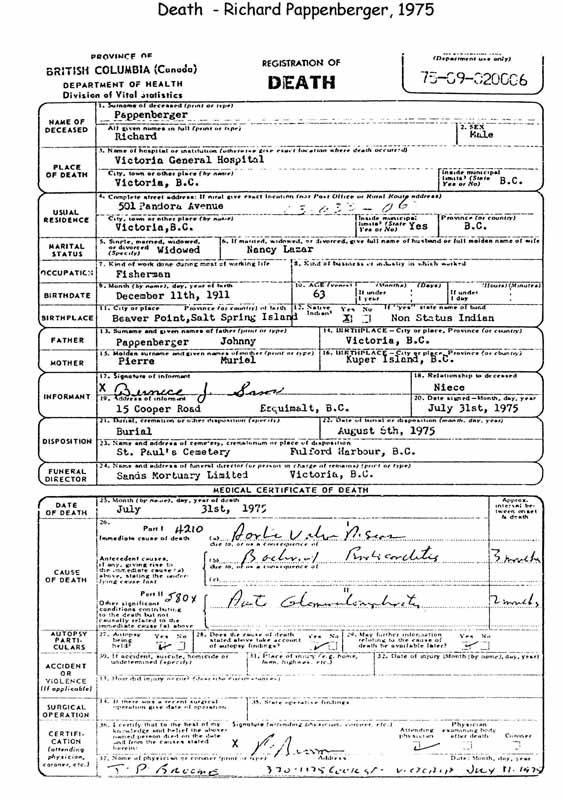 Death - Richard Pappenberger, 1975
PROVINCE OF
BRITISH COLUMBIA (Canada)
DEPARTMENT OF HEALTH
Division of Vital Statistics
REGISTRATION OF
DEATH
(Department use only)
75-09-020006
NAME OF DECEASED
1. Surname of deceased (print or type)
Pappenberger
All given names in full (print or type)
Richard
2. SEX
Male
PLACE OF DEATH
3. Name of hospital or institution (otherwise give exact location where death occurred)
Victoria General Hospital
City, town or other place (by name)
Victoria, B.C.
Inside municipal limits? (State Yes or No)
B.C.
USUAL RESIDENCE
4. Complete street address: If rural give exact location (not Post Office or Rural Route address)
501 Pandora Avenue
City, town or other place (by name)
Victoria,B.C.
Inside municipal limits? (State Yes or No)
Yes
Province (or country)
B.C.
MARITAL STATUS
5. Single, married, widowed, or divorced (Specify)
Widowed
6. If married, widowed, or divorced, give full name of husband or full maiden name of wife
Nancy Lazar
OCCUPATION
7. Kind of work done during most of working life
Fisherman
8. Kind of business or industry in which worked
BIRTHDATE
9. Month (by name), day, year of birth
December 11th, 1911
10. AGE (years)
63
(Months) (Days)
If under 1 year
(Hours) (Minutes)
If under 1 day
BIRTHPLACE
11. City or place Province (or country) of birth
Beaver Point,Salt Spring Island
12. Native Indian?
Yes No
X
If "yes" state name of band
Non Status Indian
FATHER
13. Surname and given names of father (print or type)
Pappenberger Johnny
14. BIRTHPLACE - City or place, Province (or country)
Victoria, B.C.
MOTHER
15. Maiden surname and given names of mother (print or type)
Pierre Muriel
16. BIRTHPLACE - City or place, Province (or country)
Kuper Island, B.C.
INFORMANT
17. Signature of informant
X Bernice J.
18. Relationship to deceased
Niece
19. Address of informant
15 Cooper Road Esquimalt, B.C.
20. Date signed - Month, day, year
July 31st, 1975
DISPOSITION
21. Burial, cremation or other disposition (specify)
Burial
22. Date of burial or disposition (month, day, year)
August 5th, 1975
23. Name and address of cemetery, crematorium or place of disposition
St. Paul's Cemetery Fulford Harbour, B.C.
FUNERAL DIRECTOR
24. Name and address of funeral director (or person in charge of remains) (print or type)
Sands Mortuary Limited Victoria, B.C.
MEDICAL CERTIFICATE OF DEATH
DATE OF DEATH
25. Month (by name), day, year of death
July 31st, 1975
Approx. interval between onset & death
CAUSE OF DEATH
26.
Part I 4210
Immediate cause of death
(a) Aortic Valve Disease
due to, or as a consequence of
Antecedent causes, if any, giving rise to the immediate cause (a) above, stating the underlying cause last
(b) Bacterial Endocarditis
3 months
due to, or as a consequence of
(c)
Part II 580X
Other significant conditions contributing to the death but not causally related to the immediate cause (a) above
II
Acute Glomerulonephritis
2 months
AUTOPSY PARTICULARS
27. Autopsy being held?
Yes No
28. Does the cause of death stated above take account of autopsy findings?
Yes No
29. May further information relating to the cause of death be available later?
Yes No
ACCIDENT OR VIOLENCE (If applicable)
30. If accident, suicide, homicide or undetermined (specify)
31. Place of injury (e.g. home, farm, highway, etc.)
32. Date of injury (Month (by name), day, year)
33. How did injury occur? (describe circumstances)
SURGICAL OPERATION
34. If there was a recent surgical operation give date of operation
35. State operative findings
CERTIFICATION (attending physician, coroner, etc.)
36. I certify that to the best of my knowledge and belief the above named person died on the date and from the causes stated herein:
Signature (attending physician, coroner, etc.)
X
Attending physician
Physician examining body after death
Coroner
37. Name of physician or coroner (print or type)
Address
Date: Month, day, year
VICTORIA JULY 31. 1975